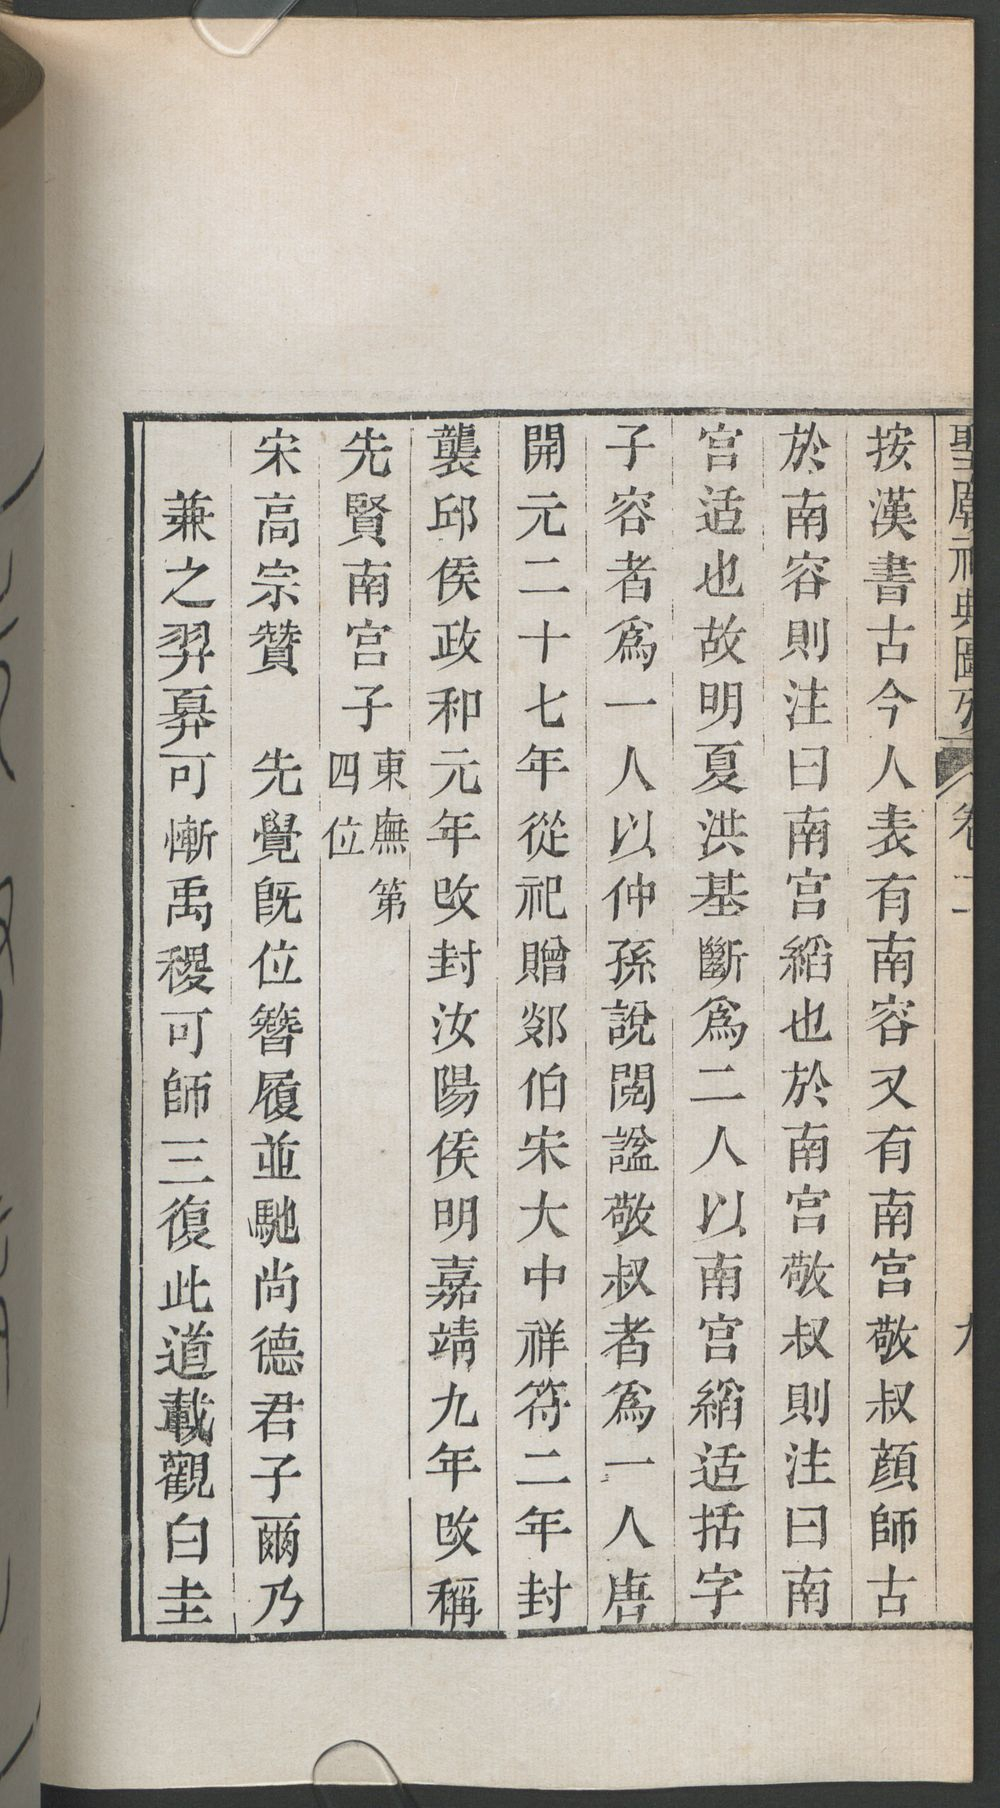 聖廟祀典圖攷 卷二 九
按漢書古今人表有南容又有南宮敬叔顔師古
於南容則注曰南宮縚也於南宮敬叔則注曰南
宮适也故明夏洪基斷爲二人以南宮縚适括字
子容者爲一人以仲孫說閱諡敬叔者爲一人唐
開元二十七年從祀贈郯伯宋大中祥符二年封
襲邱侯政和元年改封汝陽侯明嘉靖九年改稱
先賢南宮子東廡第四位
宋高宗贊 先覺旣位簪履並馳尚德君子爾乃
兼之羿奡可慚禹稷可師三復此道載觀白圭